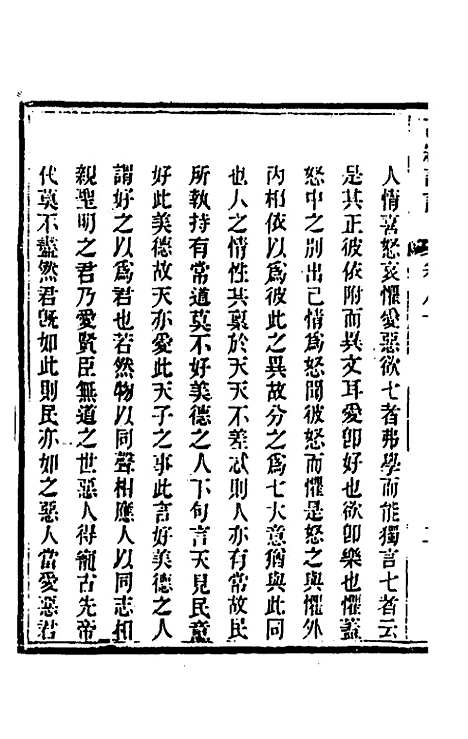 人情喜怒哀懼愛惡欲七者弗學而能獨言七者云
是其正彼依附而異文耳愛卽好也欲卽樂也懼蓋
怒中之別出己情爲怒聞彼怒而懼是怒之與懼外
內相依以爲彼此之異故分之爲七大意猶與此同
也人之情性其稟於天天不差忒則人亦有常故民
所執持有常道莫不好美德之人下句言天見民意
好此美德故天亦愛此天子之事此言好美德之人
謂好之以爲君也若然物以同聲相應人以同志相
親聖明之君乃愛賢臣無道之世惡人得寵古先帝
代莫不盡然君旣如此則民亦如之惡人當愛惡君